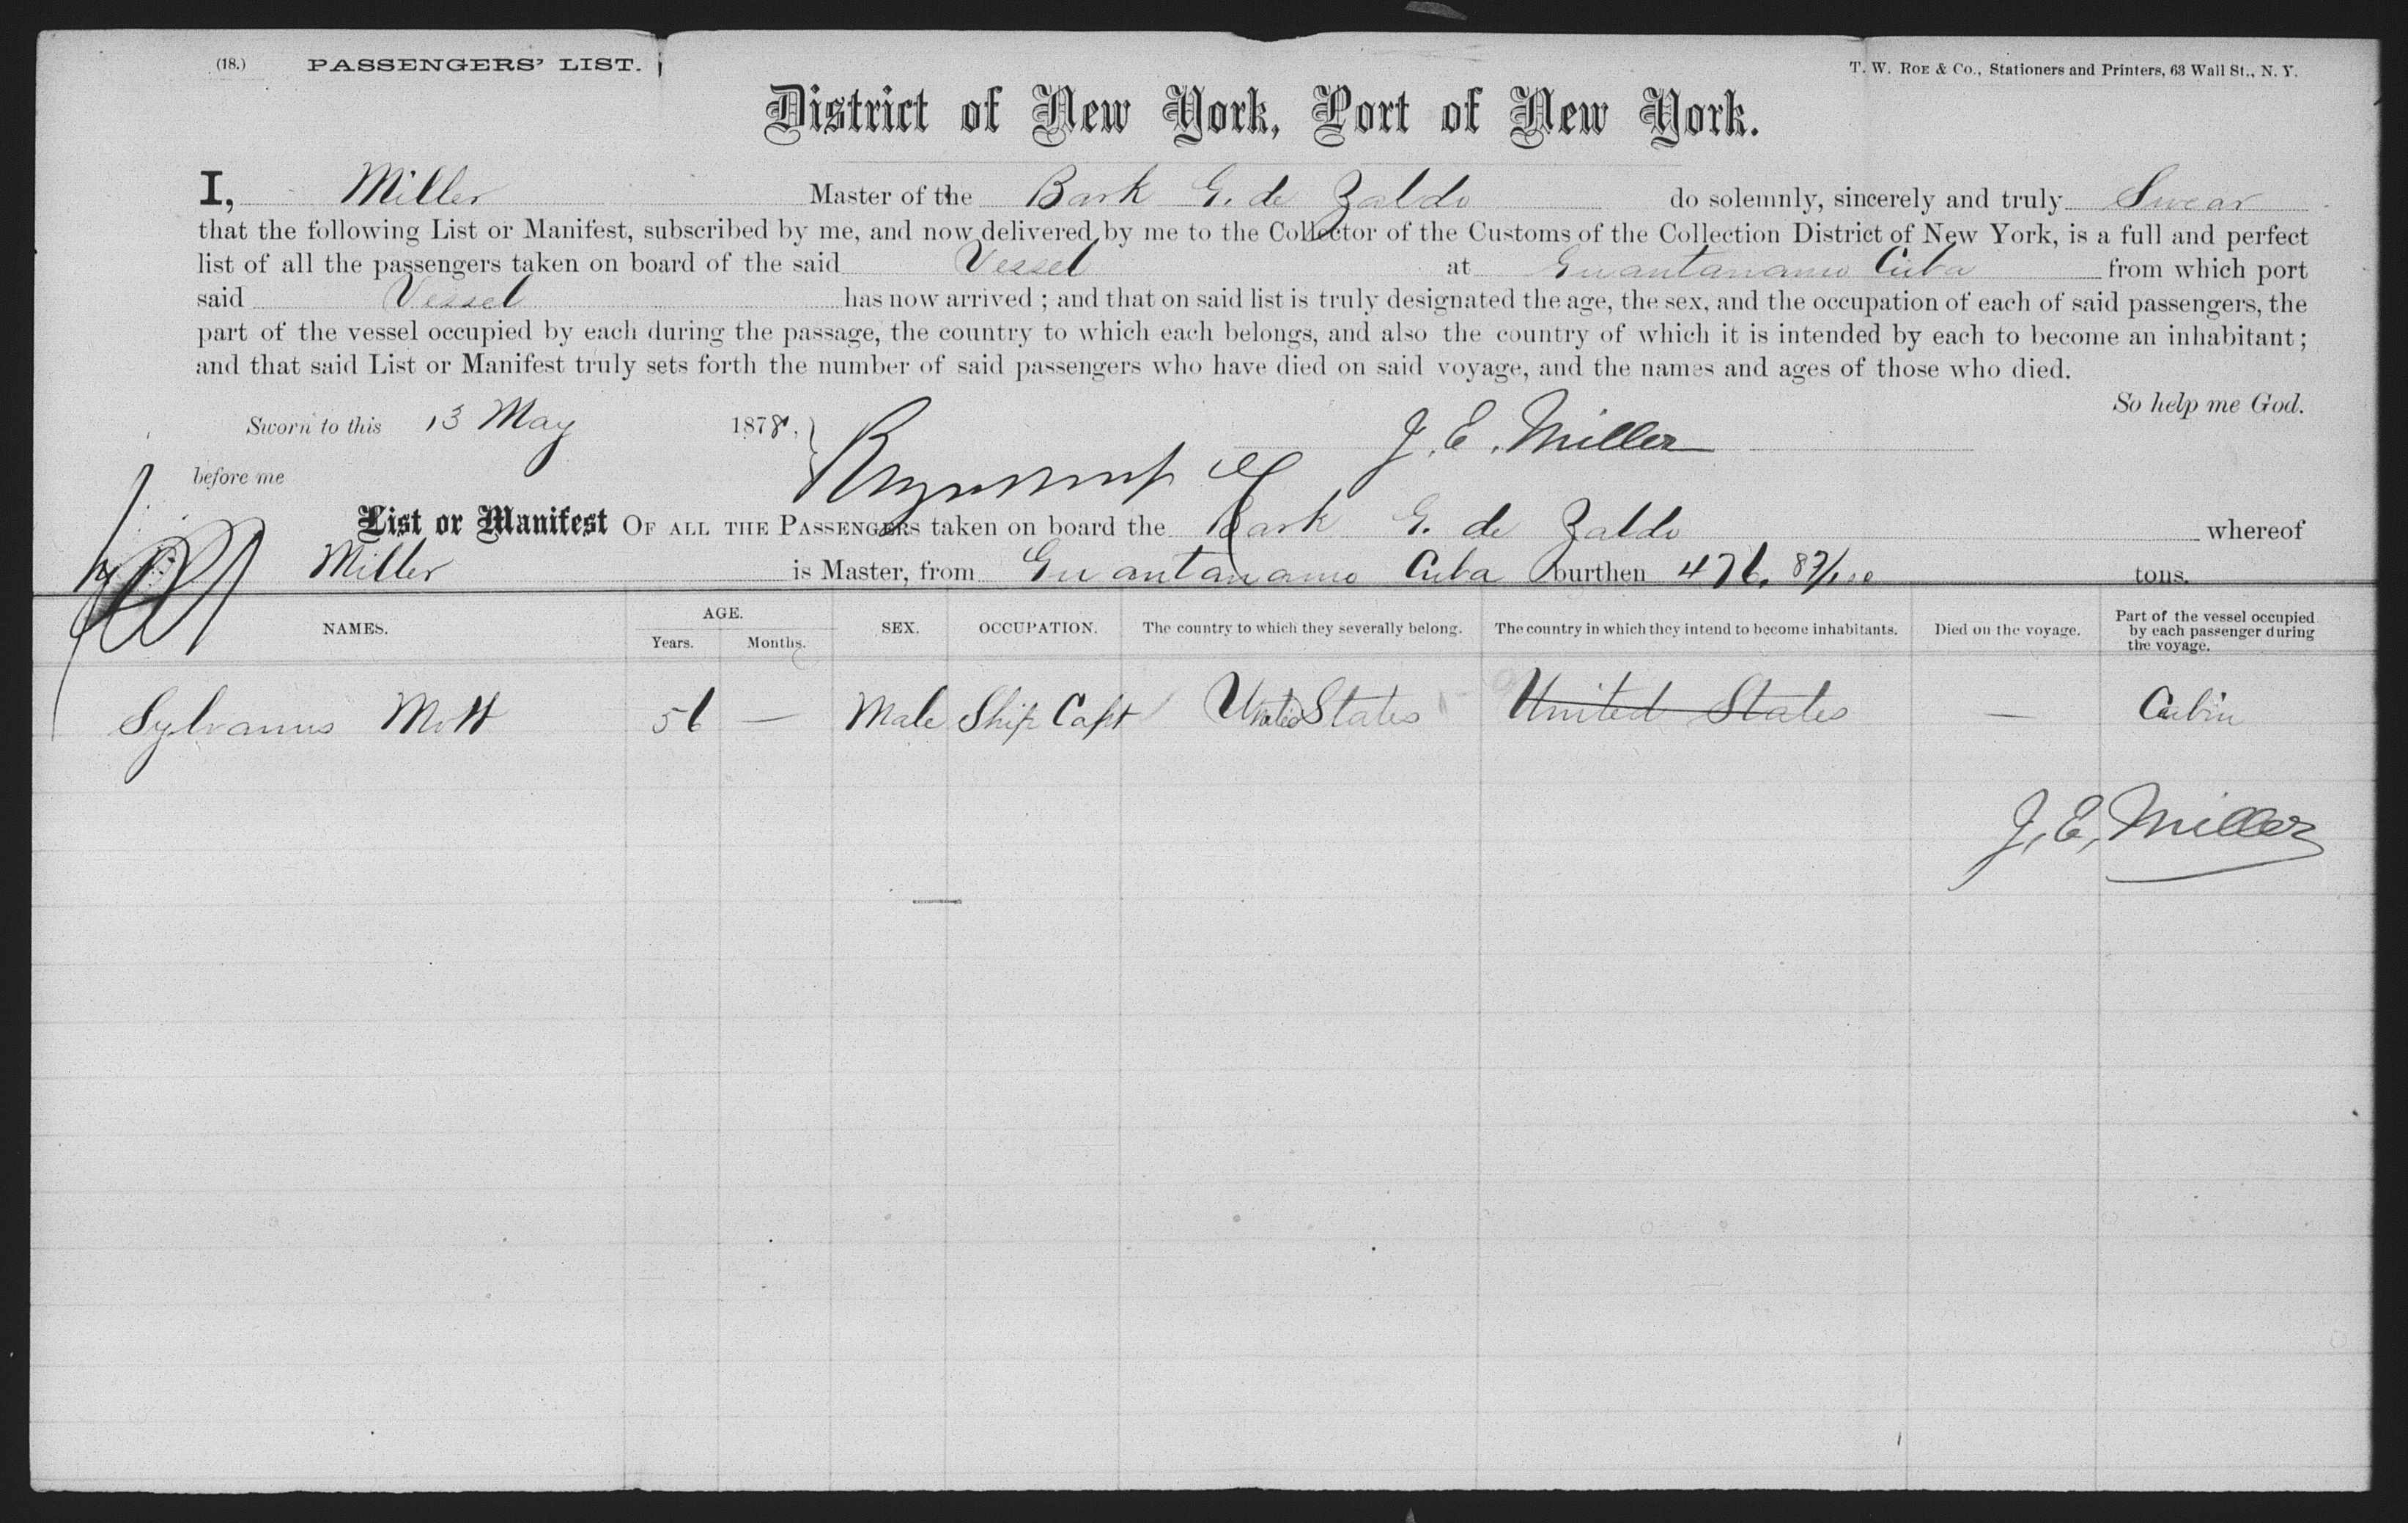 (18.) PASSENGERS' LIST.
T. W. ROE & CO., Stationers and Printers, 63 Wall St., N. Y.
District of New York, Port of New York.
I, Miller Master of the Bark G. de Zaldo do solemnly, sincerely and truly Swear
that the following List or Manifest, subscribed by me, and now delivered by me to the Collector of the Customs of the Collection District of New York, is a full and perfect
list of all the passengers taken on board of the said Vessel at Guantanamo Cuba from which port
said Vessel has now arrived; and that on said list is truly designated the age, the sex, and the occupation of each of said passengers, the
part of the vessel occupied by each during the passage, the country to which each belongs, and also the country of which it is intended by each to become an inhabitant;
and that said List or Manifest truly sets forth the number of said passengers who have died on said voyage, and the names and ages of those who died.
So help me God.
Sworn to this 13 May 1878. J. E. Miller
before me
List or Manifest OF ALL THE PASSENGERS taken on board the Bark G. de Zaldo whereof
Miller is Master, from Guantanamo Cuba burthen 476, 87/100 tons.
NAMES. AGE. Years. Months. SEX. OCCUPATION. The country to which they severally belong. The country in which they intend to become inhabitants. Died on the voyage. Part of the vessel occupied by each passenger during the voyage.
Sylvanus Mott 56 — Male Ship Capt United States United States — Cabin
J. E. Miller